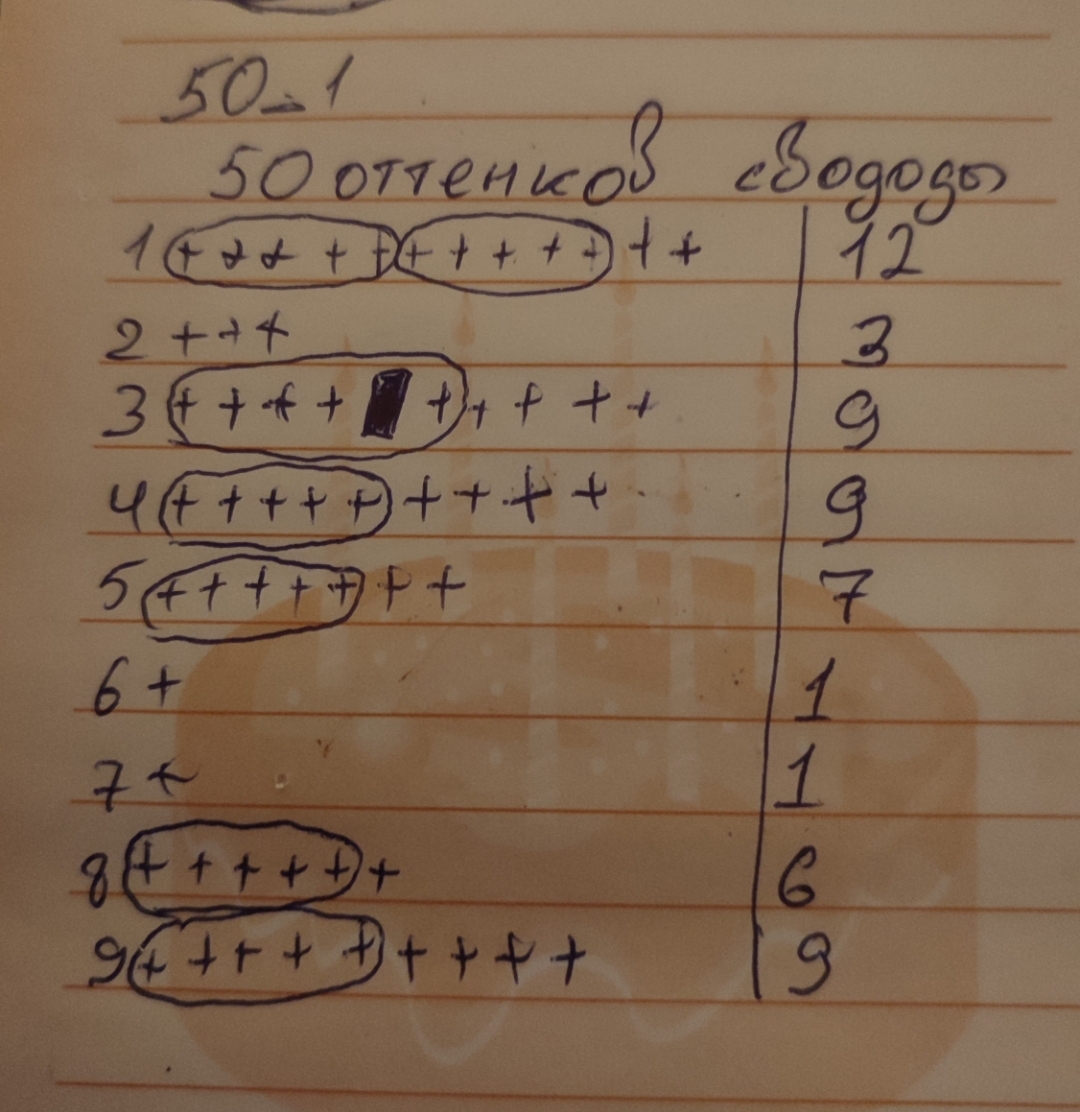 50-1
50 оттенков свододы
1 + + + + + + + + + + + + 12
2 + + + 3
3 + + + + + + + + + 9
4 + + + + + + + + + 9
5 + + + + + + + 7
6 + 1
7 + 1
8 + + + + + + 6
9 + + + + + + + + + 9